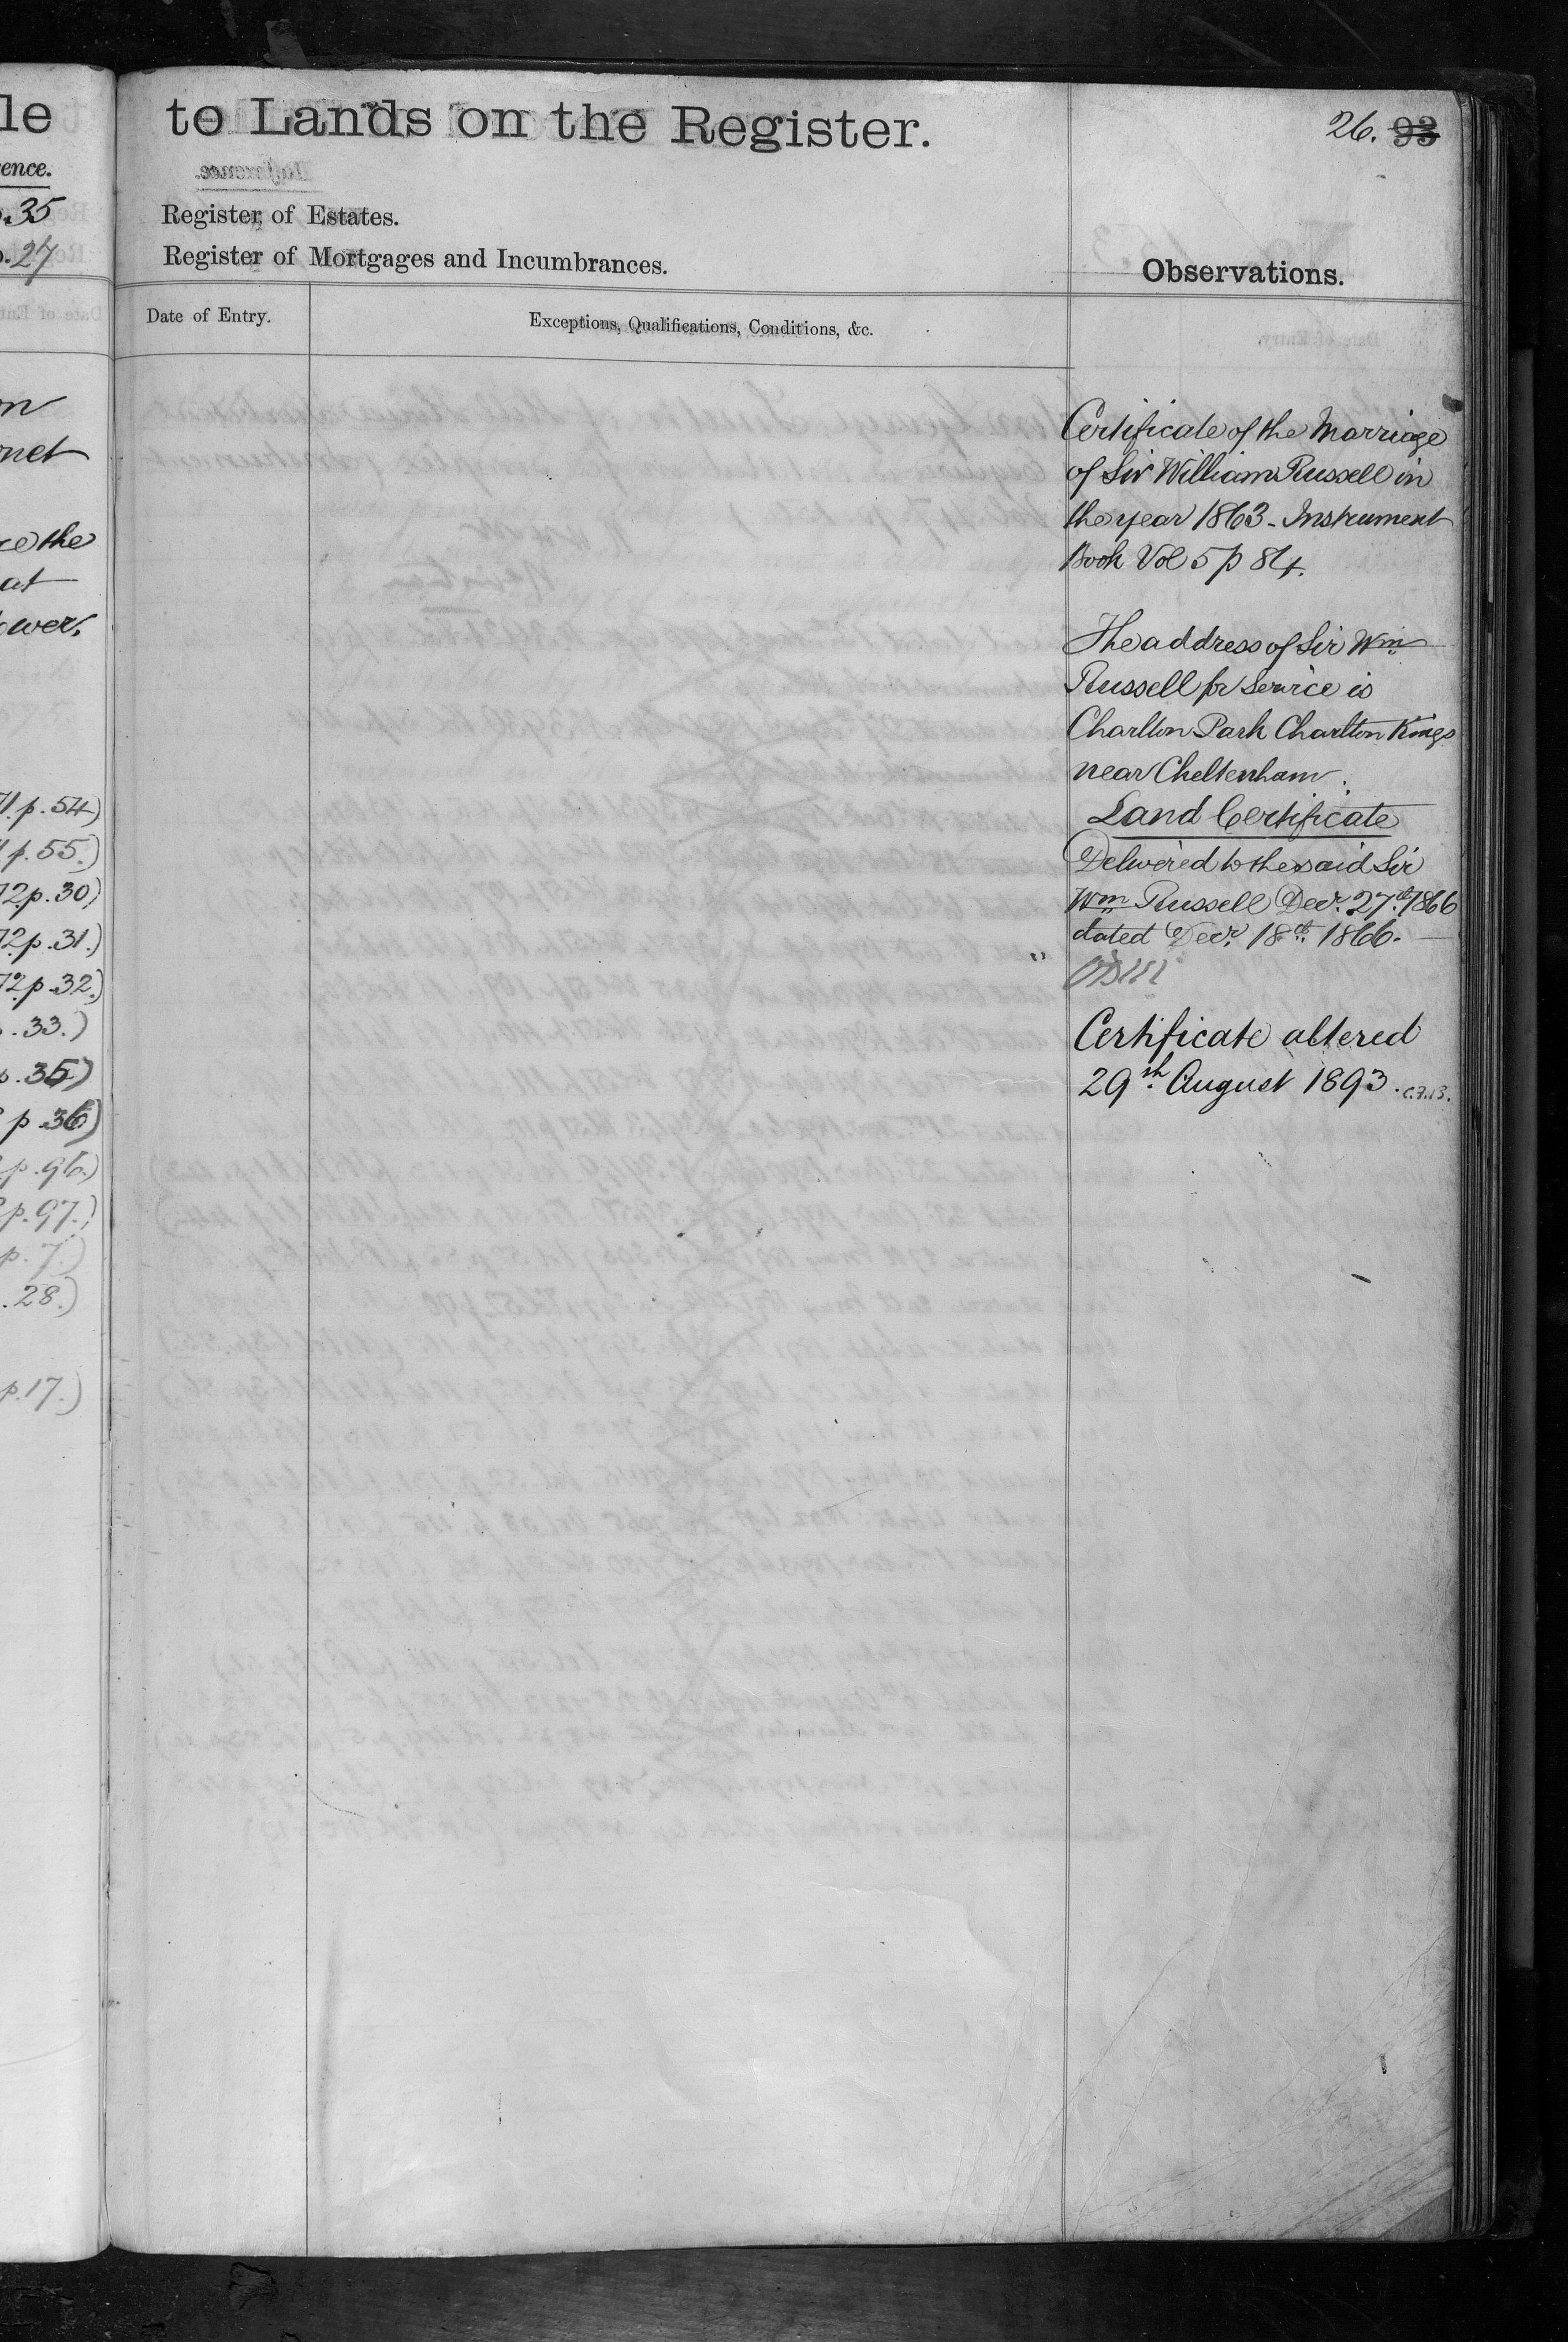 le
ence.
.35
.27
on
net
ce the
at
ower.
71.p.54)
p.55.)
72p.30)
72p.31.)
72p.32.)
.33.)
.35)
p.36)
p.96.)
p.97.)
p.7.)
.28.)
p.17.)
to Lands on the Register.
26. 93
Register of Estates.
Register of Mortgages and Incumbrances.
Observations.
Date of Entry.
Exceptions, Qualifications, Conditions, &c.
Certificate of the Marriage
of Sir William Russell in
the year 1863 - Instrument
Book Vol 5 p 84.
The address of Sir Wm
Russell for Service is
Charlton Park Charlton Kings
near Cheltenham.
Land Certificate
Delivered to the said Sir
Wm Russell Decr. 27th 1866
dated Decr. 18th 1866.
Certificate altered
29th August 1893.